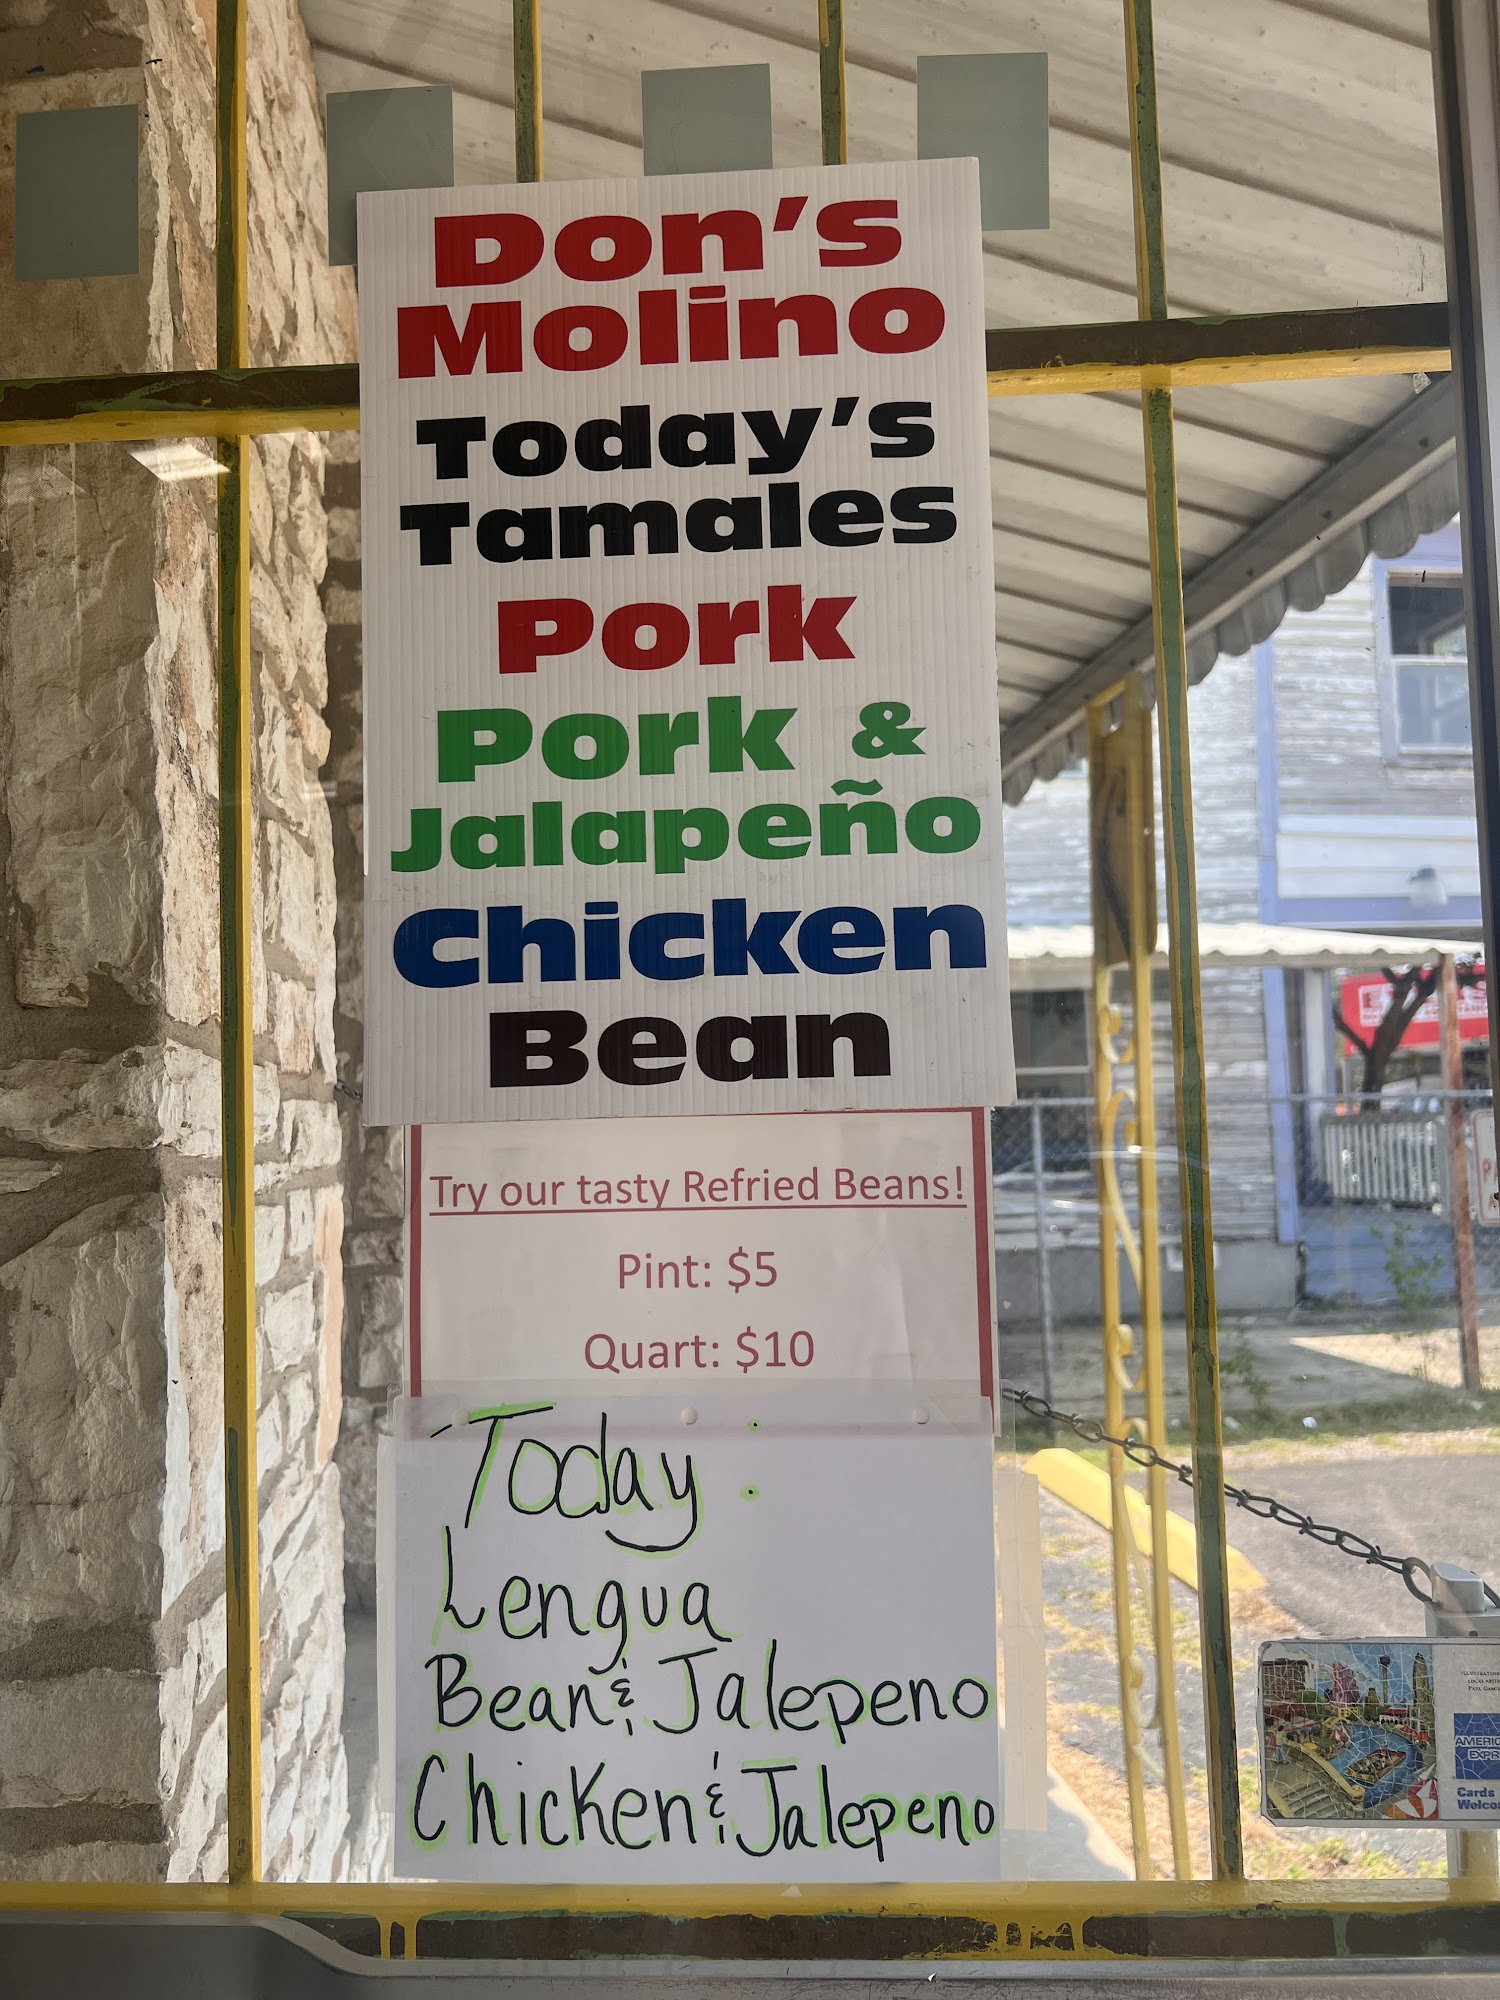 Don's
Molino
Today's
Tamales
Pork
Pork &
Jalapeño
Chicken
Bean
Try our tasty Refried Beans!
Pint: $5
Quart: $10
Today:
Lengua
Bean & Jalepeno
Chicken & Jalepeno
AMERIC
EXPR
Cards
Welco